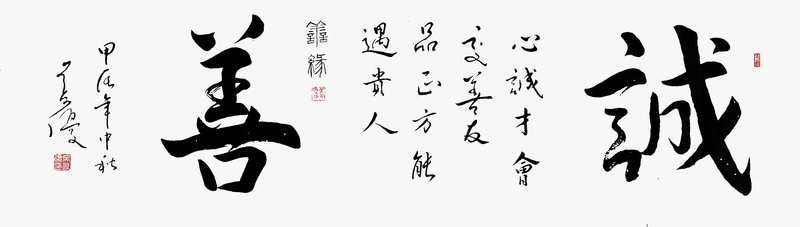 誠
心誠才會
交善友
品正方能
遇貴人
譱緣
善
甲辰年中秋